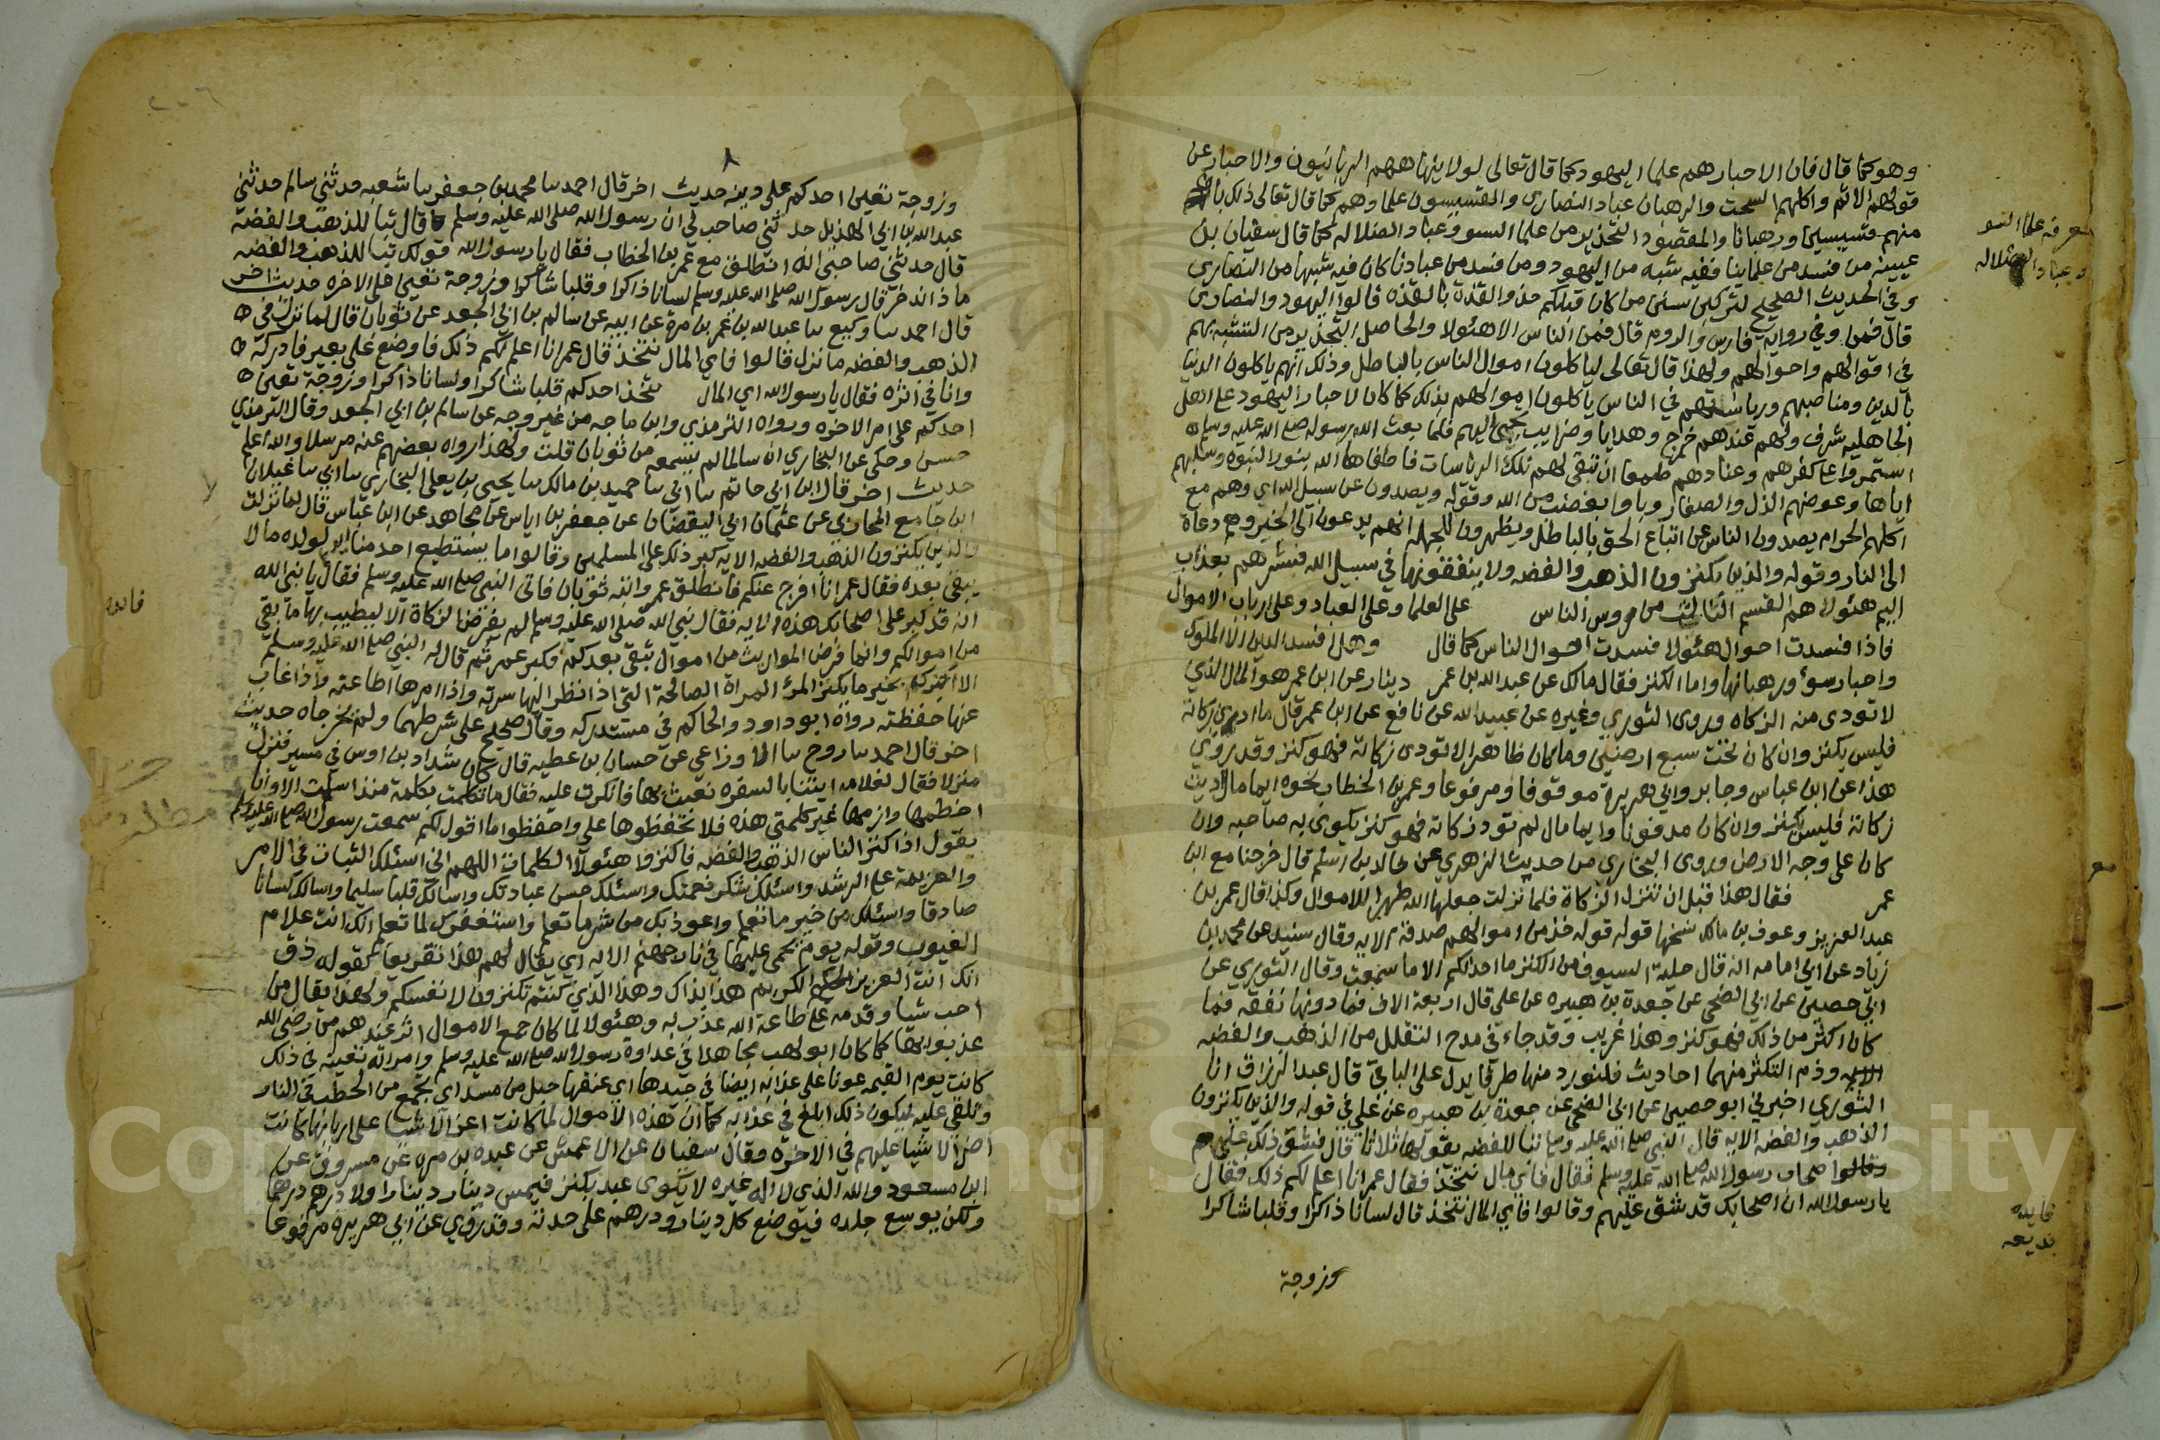 وهو كما قال فان الاحبار هم علما اليهود كما قال تعالى لولا ينهاهم الربانيون والاحبار عن
قولهم الاثم واكلهم السحت والرهبان عباد النصارى والقسيسون علماوهم كما قال تعالى ذلك بان
منهم قسيسين ورهبانا والمقصود التحذير من علما السوو عباد الضلاله كما قال سفيان بن
عيينه من فسد من علماينا ففيه شبه من اليهود ومن فسد من عبادنا كان فيه شبها من النصارى
وفي الحديث الصحيح لتركبن سنن من كان قبلكم حذو القذة بالقذه قالوا اليهود والنصارى
قال فمن وفي رواية فارس والروم قال فمن الناس الا هئولا والحاصل التحذير من التشبه بهم
في اقوالهم واحوالهم ولهذا قال تعالى لياكلون اموال الناس بالباطل وذلك انهم ياكلون الدنيا
بالدين ومناصبهم ورياستهم في الناس ياكلون اموالهم بذلك كما كان لاحبار اليهود على اهل
الجاهليه شرف ولهم عندهم خرج وهدايا وضرايب تجيى اليهم فلما بعث الله رسوله صلى الله عليه وسلم
استمروا على كفرهم وعنادهم طمعا ان تبقى لهم تلك الرياسات فاطفاها الله بنور النبوه وسلبهم
اياها وعوضهم الذل والصغار وباوا بغضب من الله وقوله ويصدون عن سبيل الله اي وهم مع
اكلهم الحرام يصدون الناس عن اتباع الحق بالباطل ويظهرون للجهله انهم يدعون الى الخير وهم دعاة
الى النار وقوله والذين يكنزون الذهب والفضه ولا ينفقونها في سبيل الله فبشرهم بعذاب
اليم هئولا هم القسم الثالث من روس الناس على العلما وعلى العباد وعلى ارباب الاموال
فاذا فسدت احوال هئولا فسدت احوال الناس كما قال وهل افسد الدين الا الملوك
واحبار سوء ورهبانها واما الكنز فقال مالك عن عبدالله بن عمر دينار عن ابن عمر هو المال الذي
لا تودى منه الزكاه وروى الثوري وغيره عن عبيد الله عن نافع عن ابن عمر قال ما ادي زكاته
فليس بكنز وان كان تحت سبع ارضين وما كان ظاهرا لا تودى زكاته فهو كنز وقد روي
هذا عن ابن عباس وجابر وابي هريرة موقوفا ومرفوعا وعمر بن الخطاب نحوه ايما مال اديت
زكاته فليس بكنز وان كان مدفونا وايما مال لم تود زكاته فهو كنز يكوى به صاحبه وان
كان على وجه الارض وروى البخاري من حديث الزهري عن خالد بن اسلم قال خرجنا مع ابن
عمر فقال هذا قبل ان تنزل الزكاة فلما نزلت جعلها الله طهرا للاموال وكذا قال عمر بن
عبد العزيز وعوف بن مالك نسخها قوله قوله خذ من اموالهم صدقة الايه وقال سنيد عن محمد بن
زياد عن ابي امامه انه قال حلية السيوف من الكنز ما احدثكم الا ما سمعت وقال الثوري عن
ابي حصين عن ابي الضحى عن جعدة بن هبيره عن علي قال اربعة الاف فما دونها نفقه فما
كان اكثر من ذلك فهو كنز وهذا غريب وقد جاء في مدح التقلل من الذهب والفضه
وذم التكثر منهما احاديث فلنورد منها طرفا يدل على الباقي قال عبد الرزاق انا
الثوري اخبرني ابو حصين عن ابي الضحى عن جعدة بن هبيره عن علي في قوله والذين يكنزون
الذهب والفضه الايه قال النبي صلى الله عليه وسلم تبا للفضه يقولها ثلاثا قال فشق ذلك على
وقالوا اصحاب رسول الله صلى الله عليه وسلم فقال فاي مال نتخذ فقال عمر انا اعلم لكم ذلك فقال
يا رسول الله ان اصحابك قد شق عليهم وقالوا فاي المال نتخذ قال لسانا ذاكرا وقلبا شاكرا
وزوجة
معرفة علما السو
وعباد الضلاله
مع
فايده
بديعه
وزوجة تعين احدكم على دينه حديث اخر قال احمد سا محمد بن جعفر سا شعبه حدثني سالم حدثني
عبدالله بن ابي الهذيل حدثني صاحب لي ان رسول الله صلى الله عليه وسلم قال تبا للذهب والفضة
قال حدثني صاحبي انه انطلق مع عمر بن الخطاب فقال يا رسول الله قولك تبا للذهب والفضه
ماذا ندخر قال رسول الله صلى الله عليه وسلم لسانا ذاكرا وقلبا شاكرا وزوجة تعين على الاخره حديث اخر
قال احمد سا وكيع سا عبدالله بن عمر بن مرة عن ابيه عن سالم بن ابي الجعد عن ثوبان قال لما نزل في
الذهب والفضه ما نزل قالوا فاي المال نتخذ قال عمر انا اعلم لكم ذلك فاوضع على بعير فادركه
وانا في اثره فقال يا رسول الله اي المال نتخذ احدكم قلبا شاكرا ولسانا ذاكرا وزوجة تعين
احدكم على امر الاخره ورواه الترمذي وابن ماجه من غير وجه عن سالم بن ابي الجعد وقال الترمذي
حسن وحكى عن البخاري ان سالما لم يسمعه من ثوبان قلت ولهذا رواه بعضهم عنه مرسلا والله اعلم
حديث اخر قال ابن ابي حاتم سا ابي سا حميد بن مالك سا يحيى بن يعلى البخاري سا ابي سا غيلان
ابن جامع المحاربي عن عثمان ابي اليقضان عن جعفر بن اياس عن مجاهد عن ابن عباس قال لما نزلت
والذين يكنزون الذهب والفضه الايه كبر ذلك على المسلمين وقالوا ما يستطيع احد منا لولده مالا
يبقى بعده فقال عمر انا افرج عنكم فانطلق عمر واتبعه ثوبان فاتى النبي صلى الله عليه وسلم فقال يا نبي الله
انه قد كبر على اصحابك هذه الايه فقال نبي الله صلى الله عليه وسلم لم يفرض الزكاة الا ليطيب بها ما بقي
من اموالكم وانما فرض المواريث من اموال تبقى بعدكم فكبر عمر ثم قال له النبي صلى الله عليه وسلم
الا اخبرك بخير ما يكنز المرء المراة الصالحة التي اذا نظر اليها سرته واذا امرها اطاعته واذا غاب
عنها حفظته رواه ابو داود والحاكم في مستدركه وقال صحيح على شرطهما ولم يخرجاه حديث
اخر قال احمد سا روح سا الاوزاعي عن حسان بن عطيه قال كان شداد بن اوس في مسير فنزل
منزلا فقال لغلامه ايتنا بالسفره نعبث بها فانكرت عليه فقال ما تكلمت بكلمة منذ اسلمت الا وانا
اخطمها وازمها غير كلمتي هذه فلا تحفظوها علي واحفظوا ما اقول لكم سمعت رسول الله صلى الله عليه وسلم
يقول اذا كنز الناس الذهب والفضه فاكنزوا هئولا الكلمات اللهم اني اسئلك الثبات في الامر
والعزيمة على الرشد واسئلك شكر نعمتك واسئلك حسن عبادتك واسالك قلبا سليما واسالك لسانا
صادقا واسئلك من خير ما تعلم واعوذ بك من شر ما تعلم واستغفرك لما تعلم انك انت علام
الغيوب وقوله يوم يحمى عليها في نار جهنم الايه اي يقال لهم هذا تقريعا كقوله ذق
انك انت العزيز الكريم هذا بذاك وهذا الذي كنتم تكنزون لانفسكم ولهذا يقال من
احب شيا وقدمه على طاعة الله عذب به وهئولا لما كان جمع الاموال اثر عندهم من رضى الله
عذبوا بها كما كان ابو لهب مجاهدا في عداوة رسول الله صلى الله عليه وسلم وامراته تعينه في ذلك
كانت يوم القيمه عونا على عذابه ايضا في جيدها اي عنقها حبل من مسد اي تجمع من الحطب في النار
وتلقي عليه ليكون ذلك ابلغ في عذابه كما ان هذه الاموال لما كانت اعز الاشيا على اربابها كانت
اضر الاشيا عليهم في الاخره وقال سفيان عن الاعمش عن عبده بن مره عن مسروق عن
ابن مسعود والله الذي لا اله غيره لا يكوى عبد بكنز فيمس دينار دينارا ولا درهم درهما
ولكن يوسع جلده فيوضع كل دينار ودرهم على حدته وقد روي عن ابي هريره مرفوعا
فايده
Copying
sity